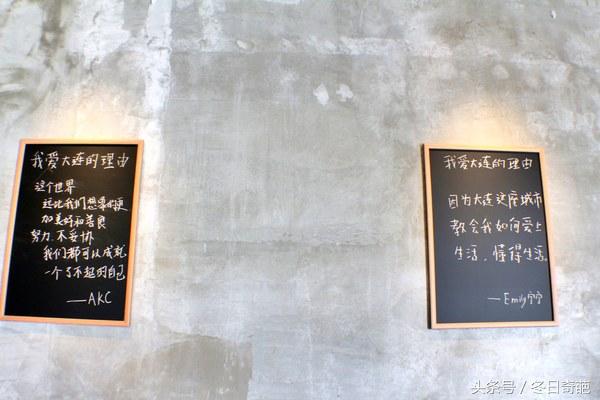 我爱大连的理由
这个世界
远比我们想象的更
加美好和善良
努力.不妥协
我们都可以成就
一个了不起的自己
——AKC
我爱大连的理由
因为大连这座城市
教会我如何爱上
生活，懂得生活。
——Emily宁宁
头条号 / 冬日奇葩